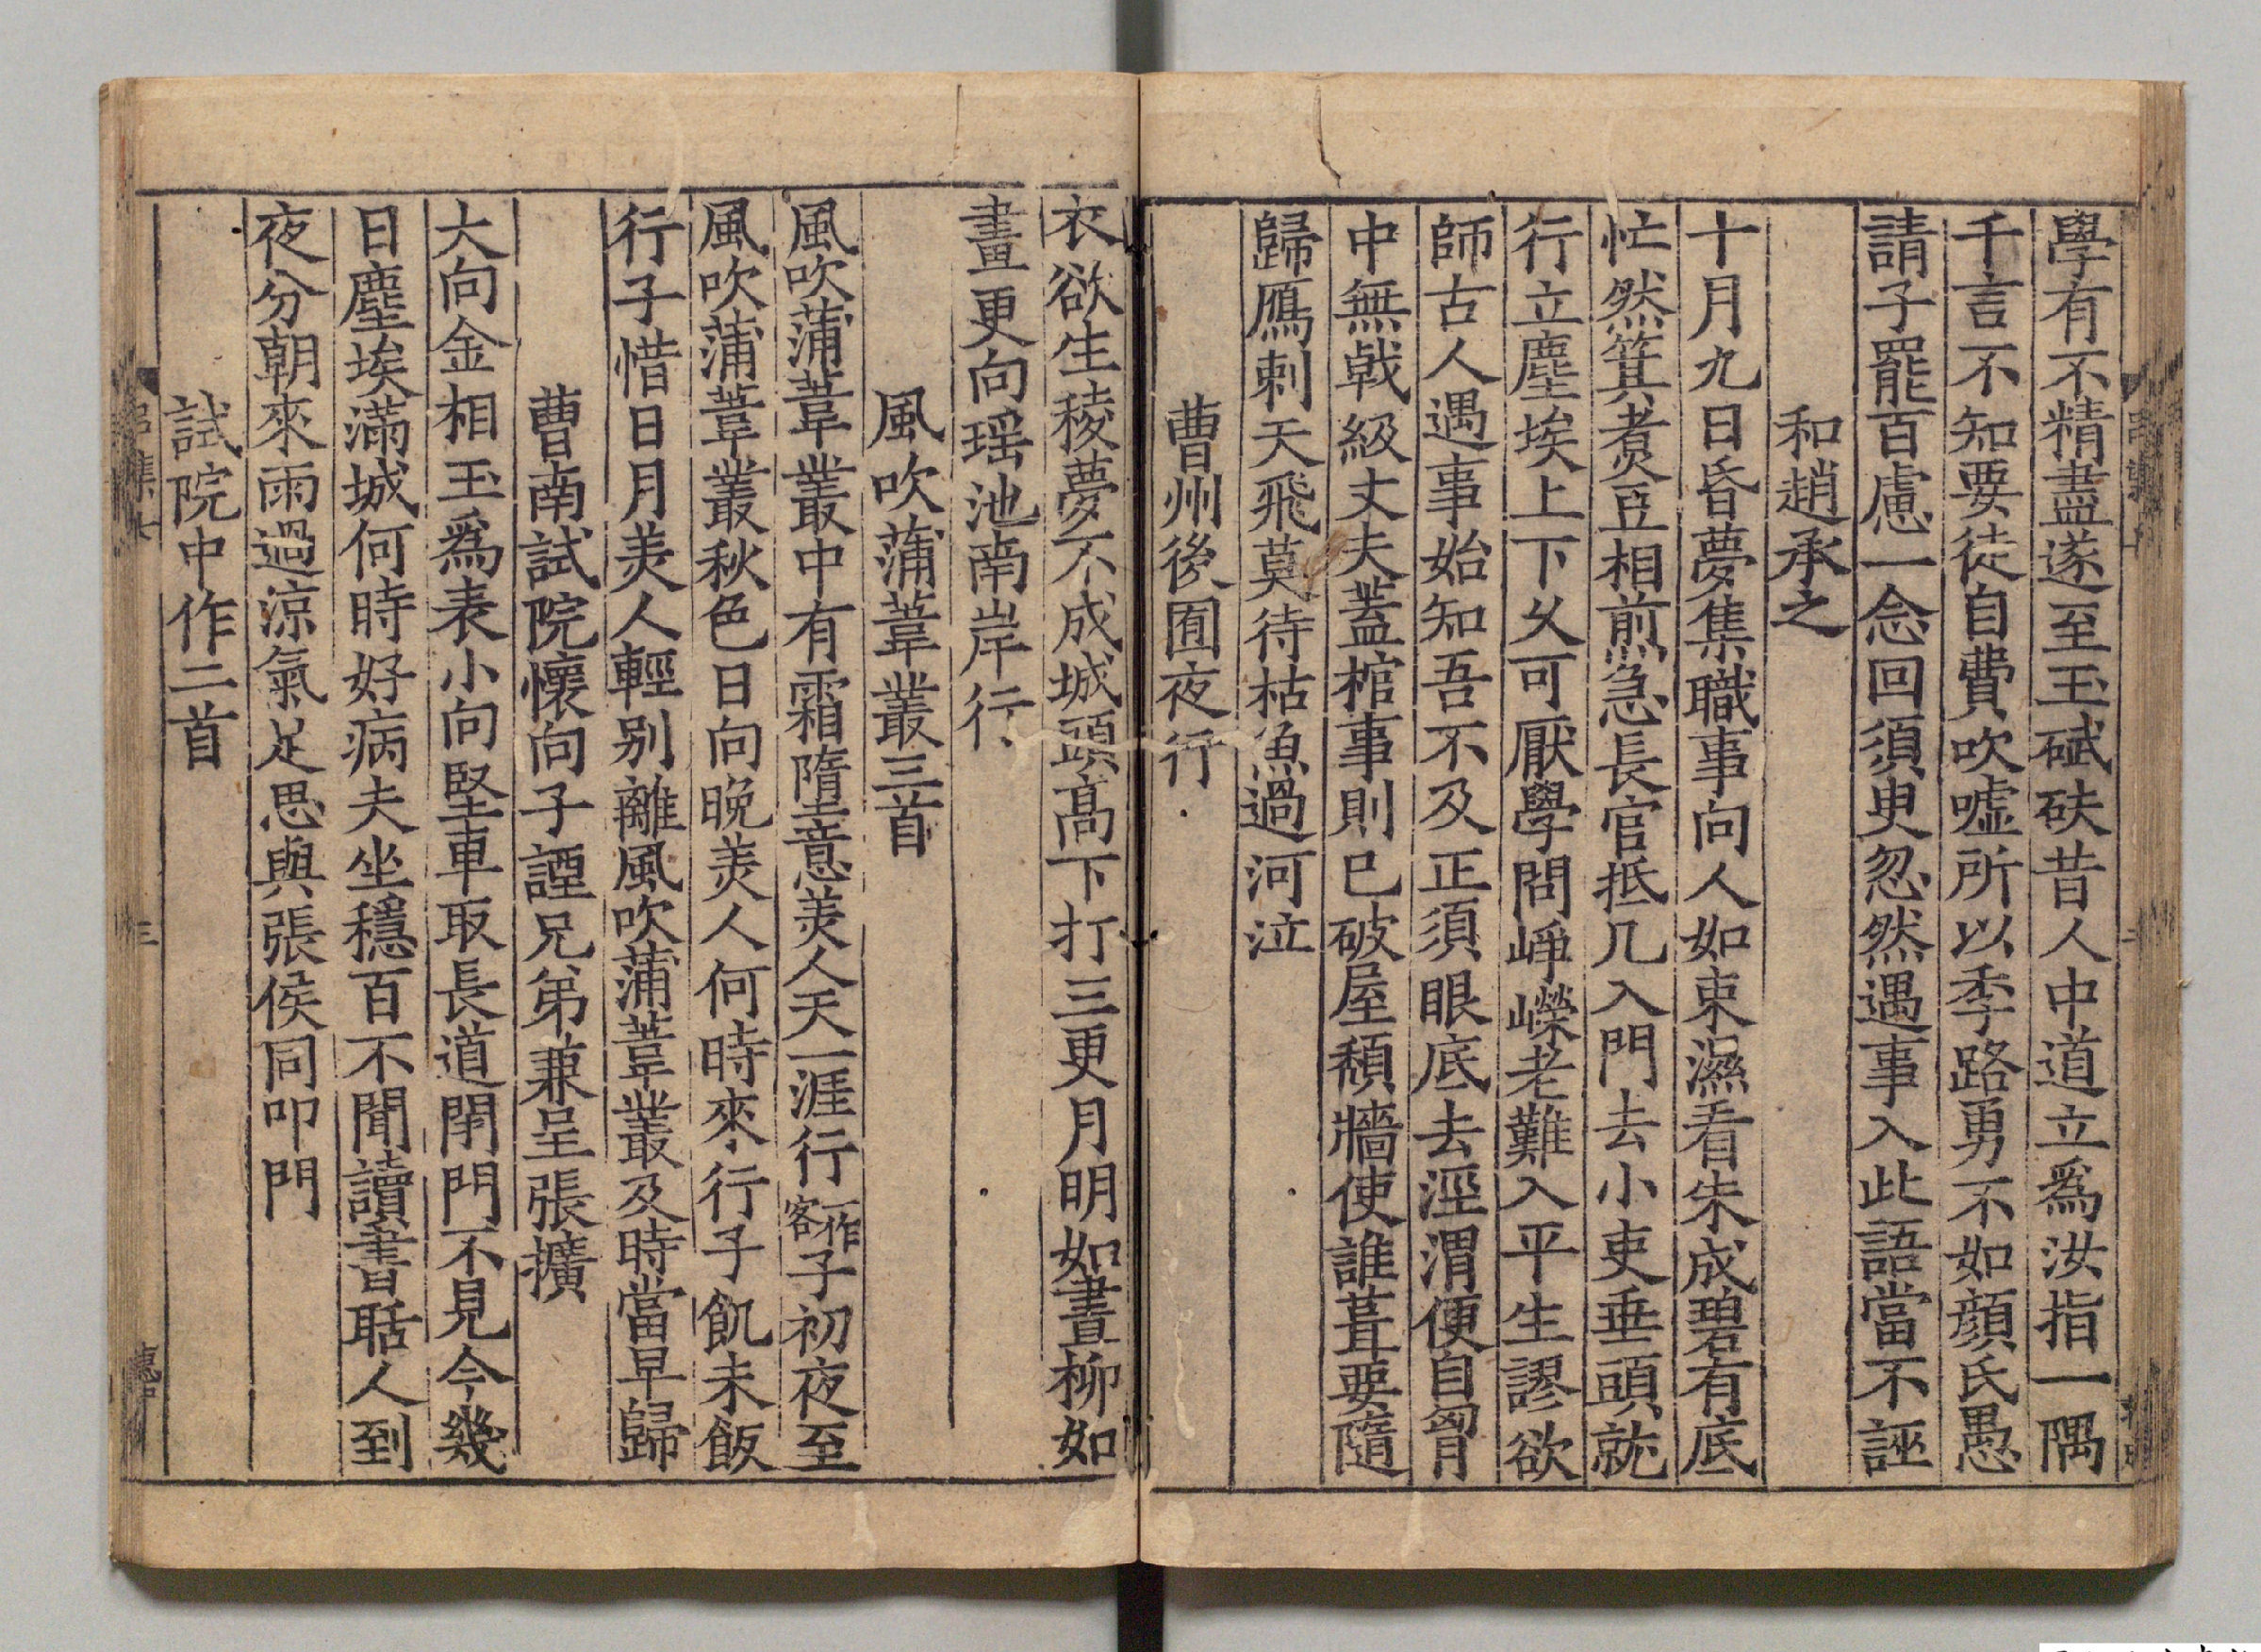 學有不精盡遂至玉碔砆昔人中道立爲汝指一隅
千言不知要徒自費吹嘘所以季路勇不如顔氏愚
請子罷百慮一念回須臾忽然遇事入此語當不誣
和趙承之
十月九日昏夢集職事向人如束濕看朱成碧有底
忙然箕煑豆相煎急長官抵几入門去小吏垂頭就
行立塵埃上下乆可厭學問崢嶸老難入平生謬欲
師古人遇事始知吾不及正須眼底去涇渭便自胷
中無戟級丈夫蓋棺事則已破屋頹牆使誰葺要隨
歸鴈刺天飛莫待枯魚過河泣
曹州後囿夜行
衣欲生稜夢不成城頭髙下打三更月明如晝柳如
畫更向瑶池南岸行
風吹蒲葦叢三首
風吹蒲葦叢中有霜墮意羙人天一涯行一作客子初夜至
風吹蒲葦叢秋色日向晚羙人何時來行子飢未飯
行子惜日月羙人輕别離風吹蒲葦叢及時當早歸
曹南試院懷向子諲兄弟兼呈張擴
大向金相玉爲表小向堅車取長道閉門不見今幾
日塵埃滿城何時好病夫坐穩百不聞讀書聒人到
夜分朝來雨過涼氣足思與張侯同叩門
試院中作二首